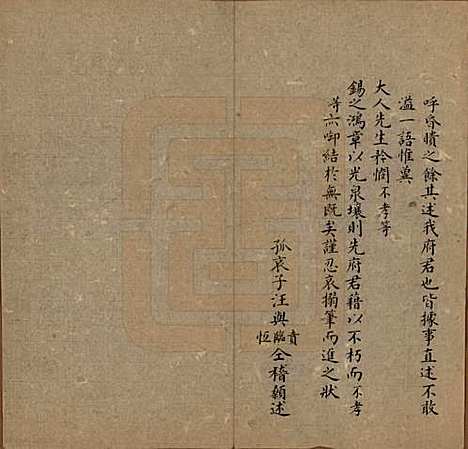 呼昏聵之餘其述我府君也皆據事直述不敢
溢一語惟冀
大人先生矜憫不孝等
錫之鴻章以光泉壤則先府君藉以不朽而不孝
等亦啣結於無既矣謹忍哀搦筆而進之狀
孤哀子汪興賁臨恆仝稽顙述